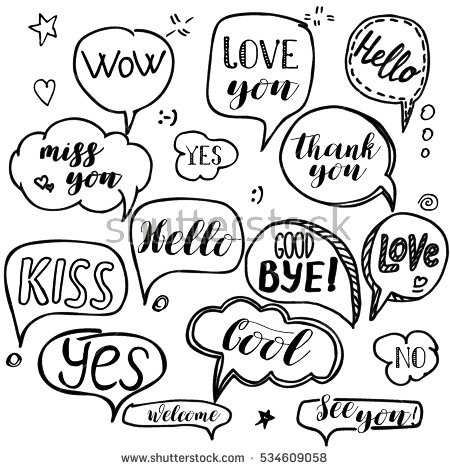 WOW
LOVE
you
Hello
:-)
miss
you
YES
thank
you
:)
shutterstock
Hello
GOOD
BYE!
LOVE
KISS
Cool
Yes
NO
Welcome
See you!
www.shutterstock.com · 534609058